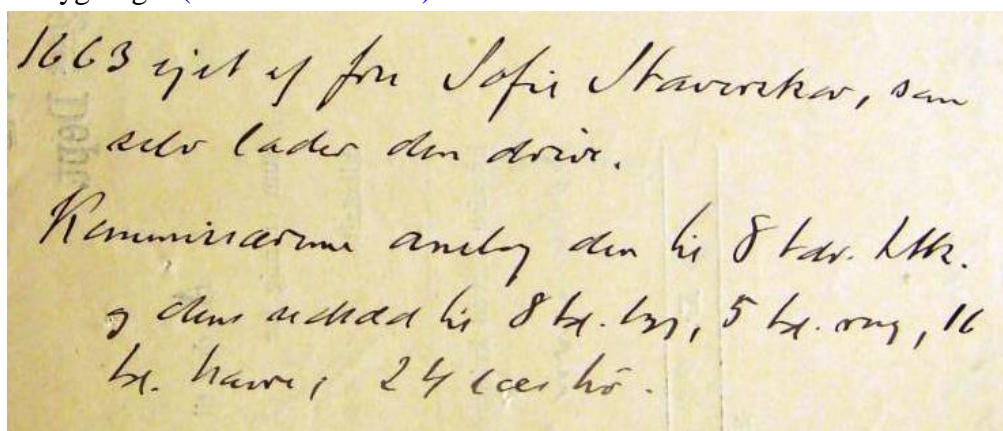 1663 ejet af fru Sofie Staverskov, som
selv lader den drive.
Kommissærerne anslog den til 8 tdr. htk.
og dens udsæd til 8 td. byg, 5 td. rug, 16
td. havre; 24 læs hö.